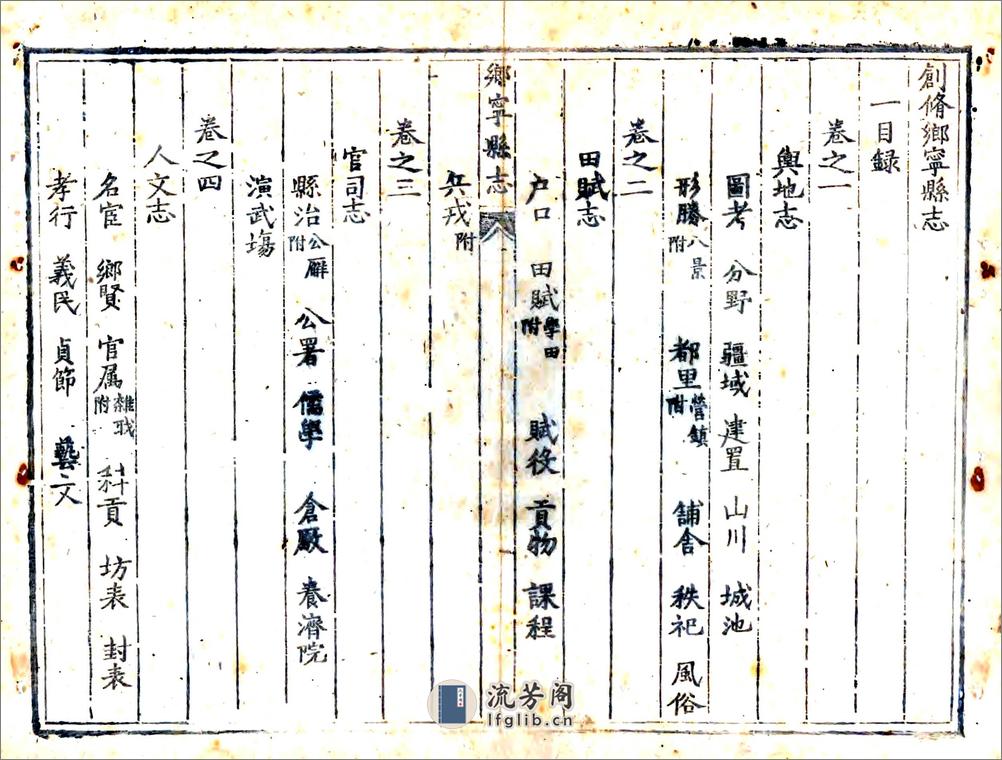 創脩鄉寧縣志
一目録
卷之一
輿地志
圖考 分野 疆域 建置 山川 城池
形勝八景附 都里營鎮附 舖舍 秩祀 風俗
卷之二
田賦志
户口 田賦學田附 賦役 貢物 課程
兵戎附
鄉寧縣志
卷之三
官司志
縣治公廨附 公署 儒學 倉厫 養濟院
演武場
卷之四
人文志
名宦 鄉賢 官属雜戝附 科貢 坊表 封表
孝行 義民 貞節 藝文
流芳阁
lfglib.cn